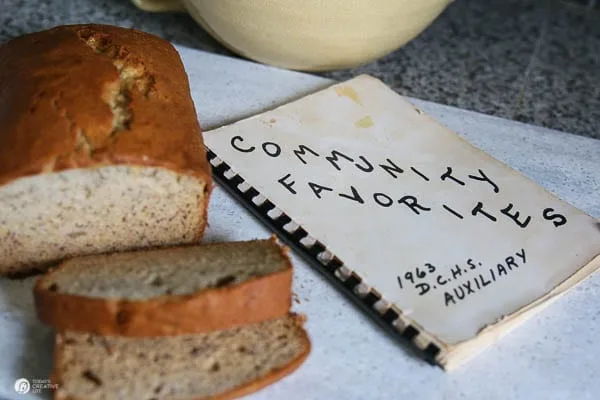 COMMUNITY
FAVORITES
1963
D.C.H.S.
AUXILIARY
TODAY'S
CREATIVE
LIFE